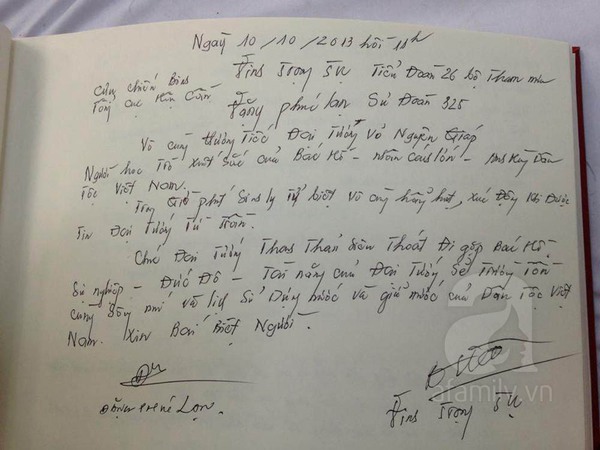 Ngày 10/10/2013 hồi 11h
Cựu chiến Binh Đinh Trọng Sự Tiểu Đoàn 26 bộ Tham mưu
Tổng cục Hậu Cần Đặng phú Lạn Sư Đoàn 325
Vô cùng thương Tiếc Đại Tướng Võ Nguyên Giáp
Người học Trò xuất sắc của Bác Hồ - nhân cách lớn - Anh Hùng Dân
Tộc Việt Nam.
Trong Giờ phút Sinh ly Tử biệt Vô cùng hẫng hụt, xúc Động Khi Được
Tin Đại Tướng Từ Trần.
Chúc Đại Tướng Thanh Thản Siêu Thoát Đi gặp Bác Hồ.
Sự nghiệp - Đức Độ - Tài năng của Đại Tướng Sẽ Trường Tồn
cùng Sông núi và lịch Sử Dựng nước và giữ nước của Dân Tộc Việt
Nam. Xin Bái Biệt Người.
Đặng Phú Lạn.
Đinh Trọng Sự
afamily.vn